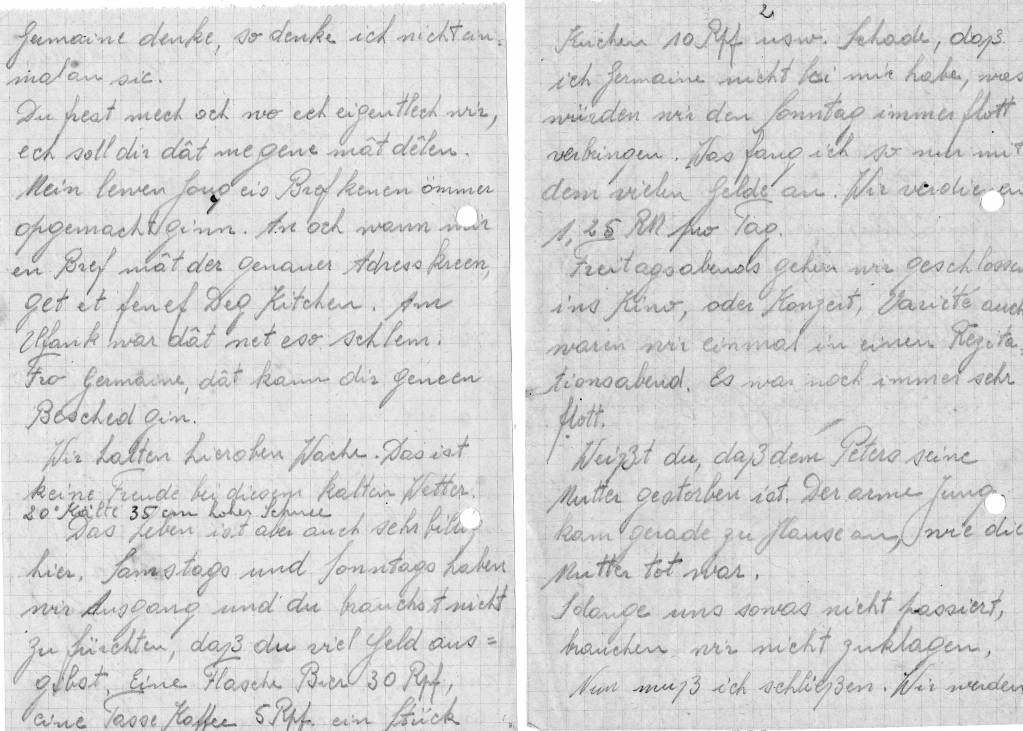 Germaine denke, so denke ich nicht ein-
mal an sie.
Du frest mech och wo ech eigentlech wir,
ech soll dir dât me gene mât dêlen.
Mein lewen Jong eis Bref kenen ömmer
opgemacht ginn. An och wann mir
en Bref mât der genauer Adress kreen,
get et fenef Deg Kitchen. Am
Ufank war dât net eso schlem.
Fro Germaine, dât kann dir geneen
Besched gin.
Wir halten hieroben Wache. Das ist
keine Freude bei diesem kalten Wetter.
20° Kälte 35 cm hoher Schnee
Das Leben ist aber auch sehr billig
hier. Samstags und Sonntags haben
wir Ausgang und du brauchst nicht
zu fürchten, daß du viel Geld aus=
gibst. Eine Flasche Bier 30 Rpf,
eine Tasse Kaffee 5 Rpf. ein Stück
2
Kuchen 10 Rpf usw. Schade, daß
ich Germaine nicht bei mir habe, was
würden wir den Sonntag immer flott
verbringen. Was fang ich so nur mit
dem vielen Gelde an. Wir verdienen
1,25 RM pro Tag.
Freitagsabends gehen wir geschlossen
ins Kino, oder Konzert, Varieté auch
waren wir einmal in einen Rezita-
tionsabend. Es war noch immer sehr
flott.
Weißt du, daß dem Peters seine
Mutter gestorben ist. Der arme Jung
kam gerade zu Hause an, wie die
Mutter tot war.
Solange uns sowas nicht passiert,
brauchen wir nicht zuklagen.
Nun muß ich schließen. Wir werden